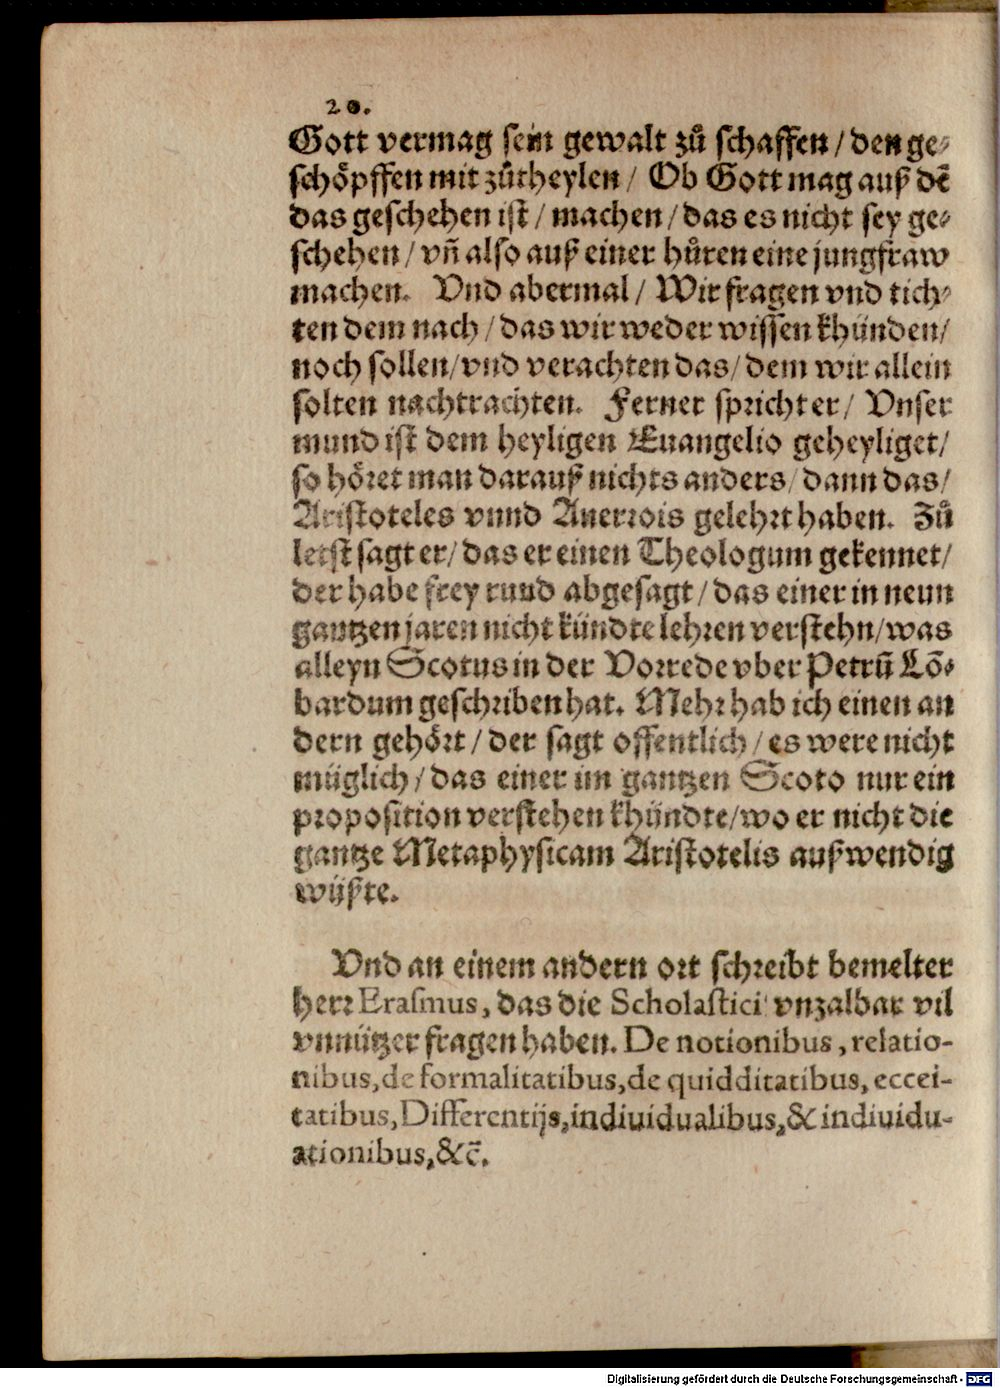 20.
Gott vermag sein gewalt zů schaffen / den ge⸗
schöpffen mit zůtheylen / Ob Gott mag auß dē
das geschehen ist / machen / das es nicht sey ge⸗
schehen / vn̄ also auß einer hůren eine jungfraw
machen. Vnd abermal / Wir fragen vnd tich⸗
ten dem nach / das wir weder wissen khünden /
noch sollen / vnd verachten das / dem wir allein
solten nachtrachten. Ferner spricht er / Vnser
mund ist dem heyligen Euangelio geheyliget /
so höret man darauß nichts anders / dann das /
Aristoteles vnnd Auerrois gelehrt haben. Zů
letst sagt er / das er einen Theologum gekennet /
der habe frey rund abgesagt / das einer in neun
gantzen jaren nicht kündte lehren verstehn / was
alleyn Scotus in der Vorrede vber Petrū Lō⸗
bardum geschriben hat. Mehr hab ich einen an
dern gehört / der sagt offentlich / es were nicht
müglich / das einer im gantzen Scoto nur ein
proposition verstehen khündte / wo er nicht die
gantze Metaphysicam Aristotelis außwendig
wüßte.
Vnd an einem andern ort schreibt bemelter
herr Erasmus, das die Scholastici vnzalbar vil
vnnützer fragen haben. De notionibus, relatio-
nibus, de formalitatibus, de quidditatibus, eccei-
tatibus, Differentijs, indiuidualibus, & indiuidu-
ationibus, &c̄.
Digitalisierung gefördert durch die Deutsche Forschungsgemeinschaft - DFG